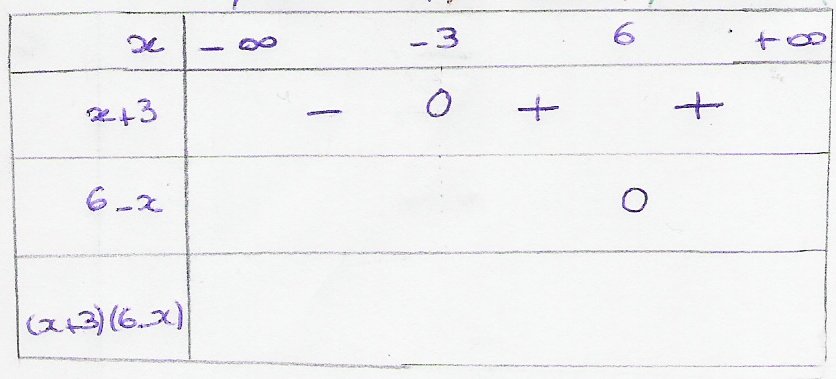 x -∞ -3 6 +∞
x+3 - 0 + +
6-x 0
(x+3)(6-x)